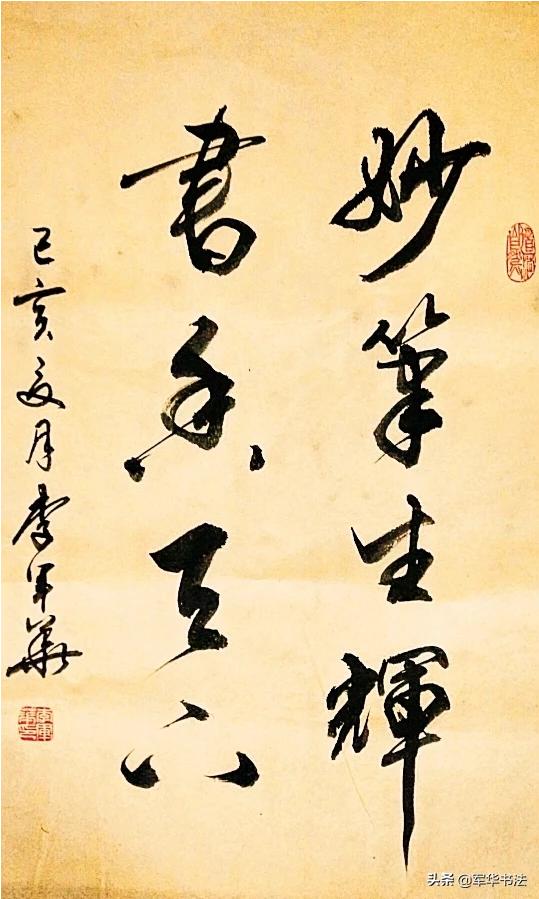 妙筆生輝
書香天下
己亥夏月李軍華
头条 @军华书法